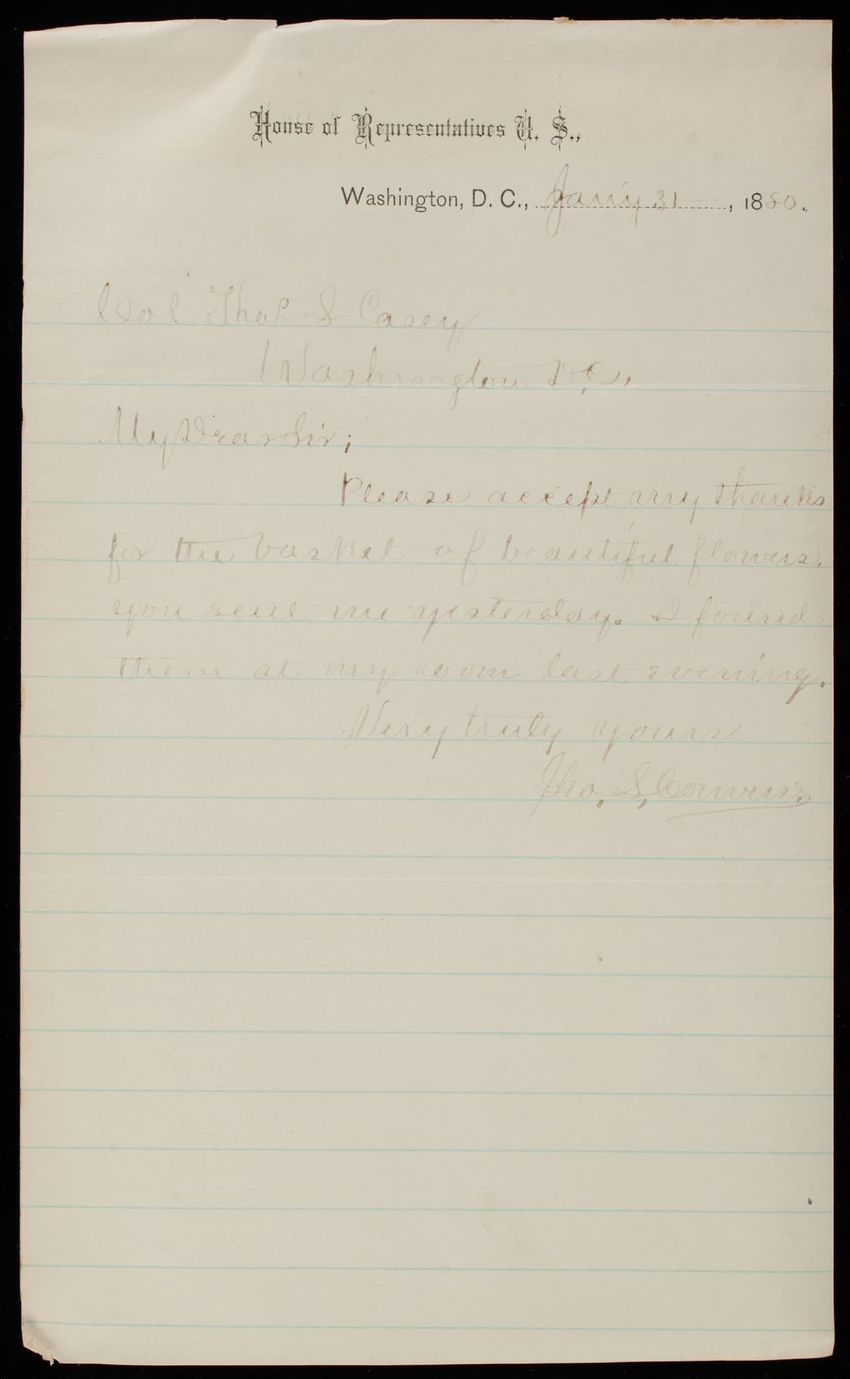 House of Representatives U. S.,
Washington, D. C., Jan'y 31, 1880.
Col Thos. L Casey
Washington D.C.,
My Dear Sir;
Please accept my thanks
for the basket of beautiful flowers.
you sent me yesterday. I found
them at my room last evening.
Very truly yours